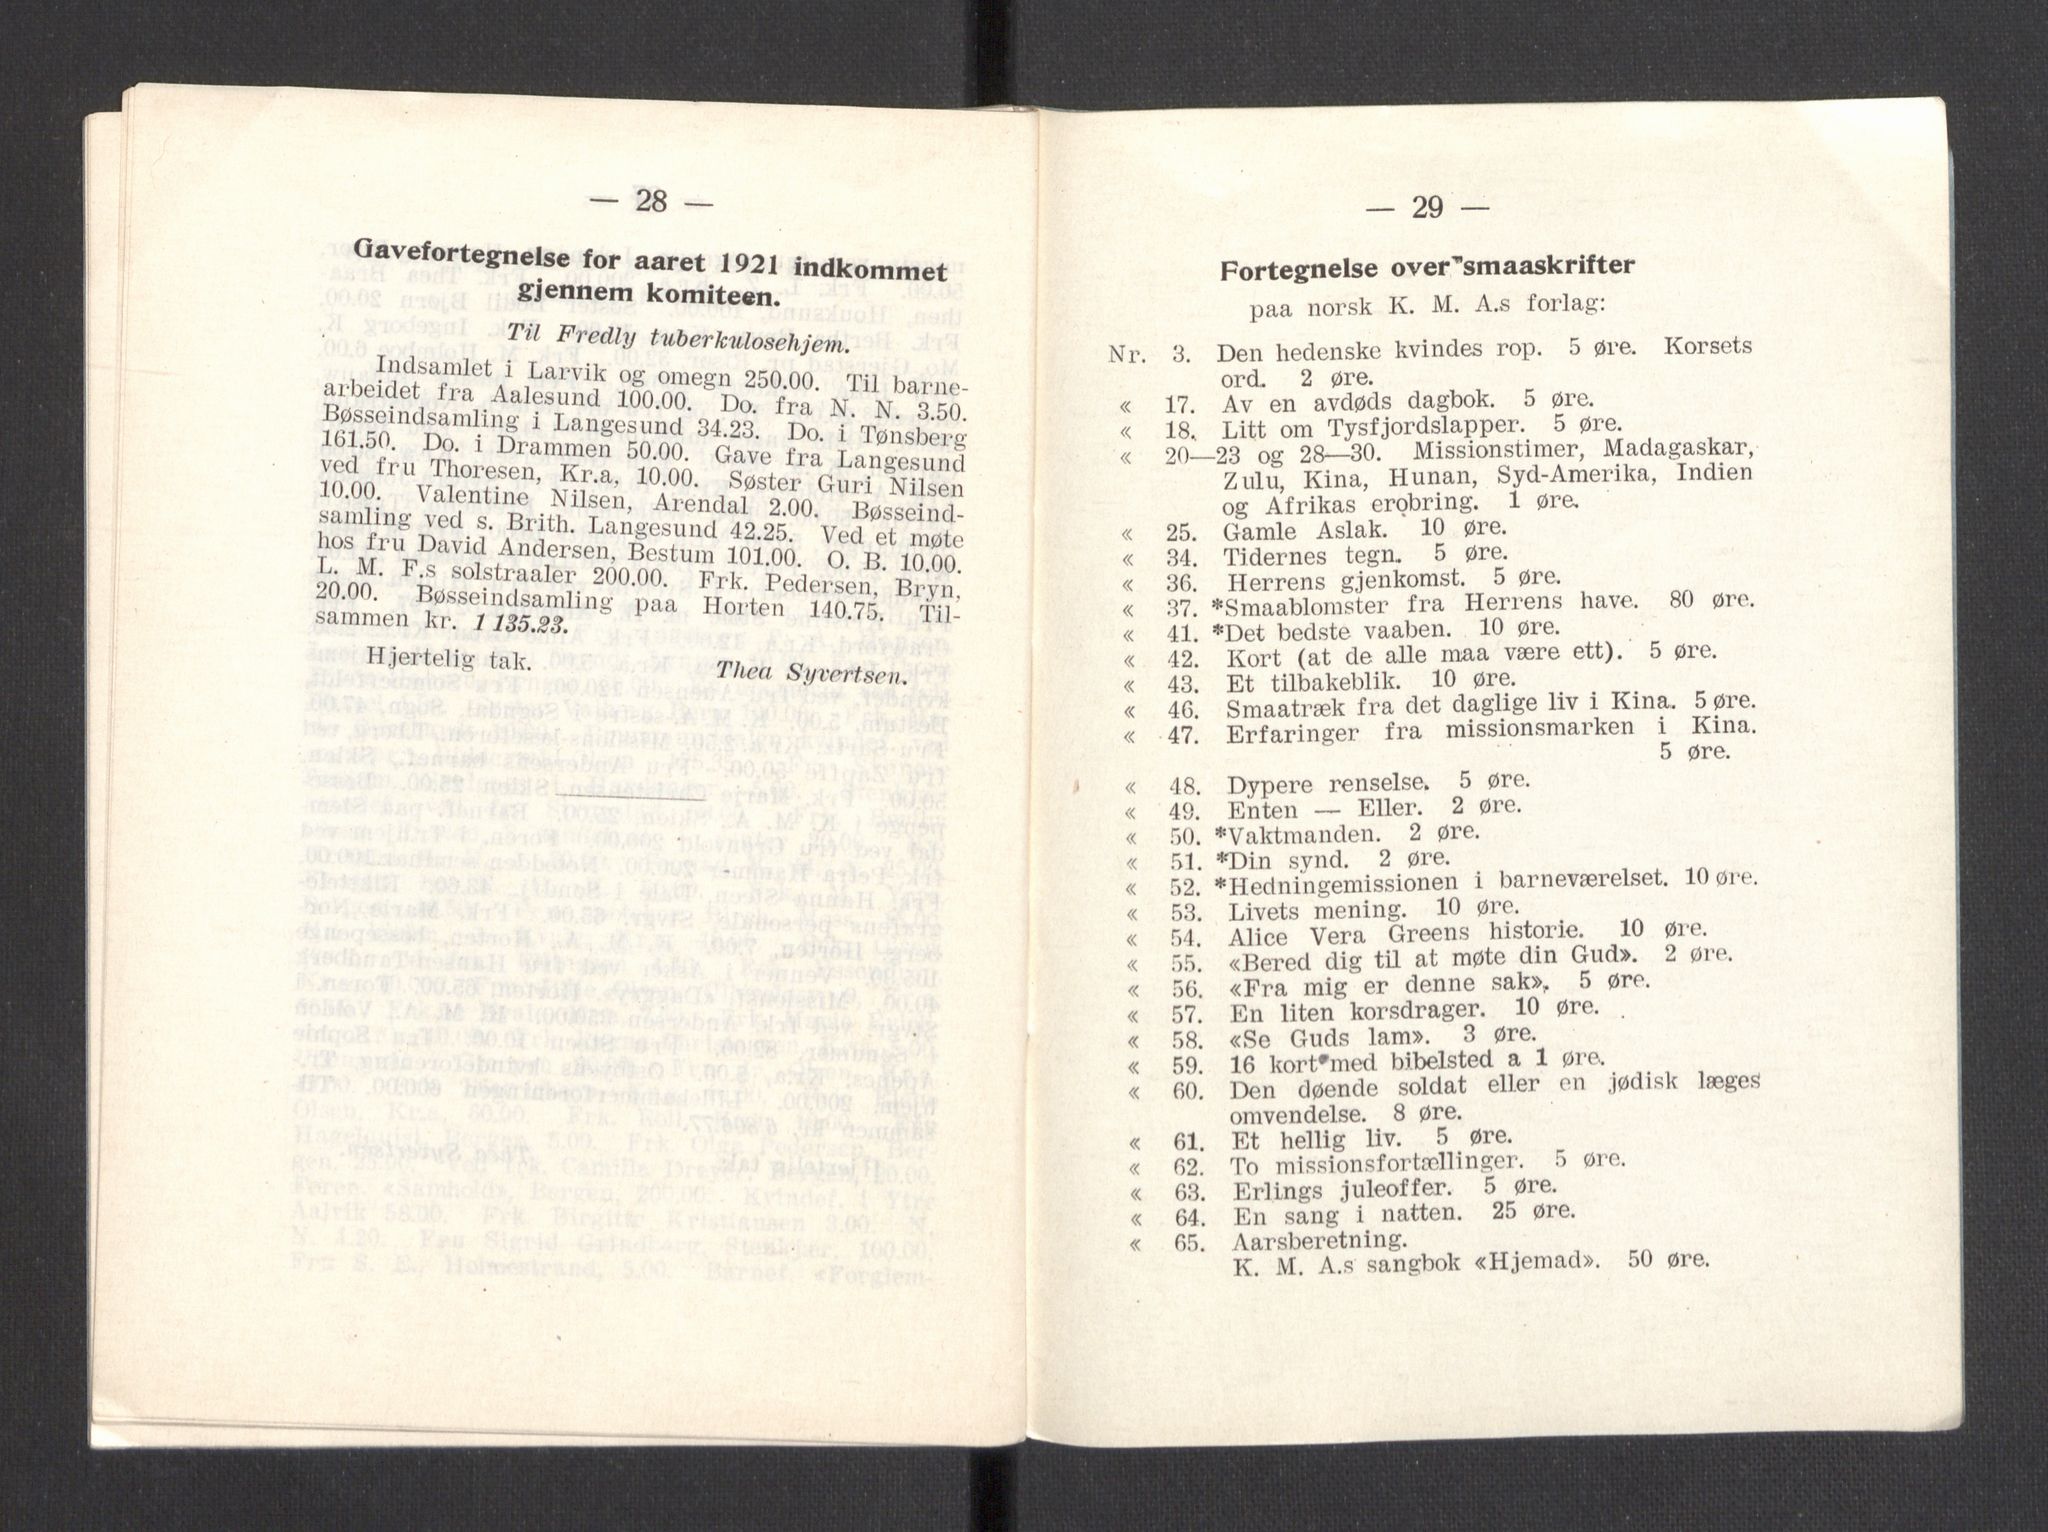 — 28 —
Gavefortegnelse for aaret 1921 indkommet
gjennem komiteen.
Til Fredly tuberkulosehjem.
Indsamlet i Larvik og omegn 250.00. Til barne-
arbeidet fra Aalesund 100.00. Do. fra N. N. 3.50.
Bøsseindsamling i Langesund 34.23. Do. i Tønsberg
161.50. Do. i Drammen 50.00. Gave fra Langesund
ved fru Thoresen, Kr.a, 10.00. Søster Guri Nilsen
10.00. Valentine Nilsen, Arendal 2.00. Bøsseind-
samling ved s. Brith. Langesund 42.25. Ved et møte
hos fru David Andersen, Bestum 101.00. O. B. 10.00.
L. M. F.s solstraaler 200.00. Frk. Pedersen, Bryn,
20.00. Bøsseindsamling paa Horten 140.75. Til-
sammen kr. 1 135.23.
Hjertelig tak.
Thea Syvertsen.
— 29 —
Fortegnelse over smaaskrifter
paa norsk K. M. A.s forlag:
Nr. 3. Den hedenske kvindes rop. 5 øre. Korsets
ord. 2 øre.
« 17. Av en avdøds dagbok. 5 øre.
« 18. Litt om Tysfjordslapper. 5 øre.
« 20—23 og 28—30. Missionstimer, Madagaskar,
Zulu, Kina, Hunan, Syd-Amerika, Indien
og Afrikas erobring. 1 øre.
« 25. Gamle Aslak. 10 øre.
« 34. Tidernes tegn. 5 øre.
« 36. Herrens gjenkomst. 5 øre.
« 37. *Smaablomster fra Herrens have. 80 øre.
« 41. *Det bedste vaaben. 10 øre.
« 42. Kort (at de alle maa være ett). 5 øre.
« 43. Et tilbakeblik. 10 øre.
« 46. Smaatræk fra det daglige liv i Kina. 5 øre.
« 47. Erfaringer fra missionsmarken i Kina.
5 øre.
« 48. Dypere renselse. 5 øre.
« 49. Enten — Eller. 2 øre.
« 50. *Vaktmanden. 2 øre.
« 51. *Din synd. 2 øre.
« 52. *Hedningemissionen i barneværelset. 10 øre.
« 53. Livets mening. 10 øre.
« 54. Alice Vera Greens historie. 10 øre.
« 55. «Bered dig til at møte din Gud». 2 øre.
« 56. «Fra mig er denne sak». 5 øre.
« 57. En liten korsdrager. 10 øre.
« 58. «Se Guds lam». 3 øre.
« 59. 16 kort med bibelsted a 1 øre.
« 60. Den døende soldat eller en jødisk læges
omvendelse. 8 øre.
« 61. Et hellig liv. 5 øre.
« 62. To missionsfortællinger. 5 øre.
« 63. Erlings juleoffer. 5 øre.
« 64. En sang i natten. 25 øre.
« 65. Aarsberetning.
K. M. A.s sangbok «Hjemad». 50 øre.